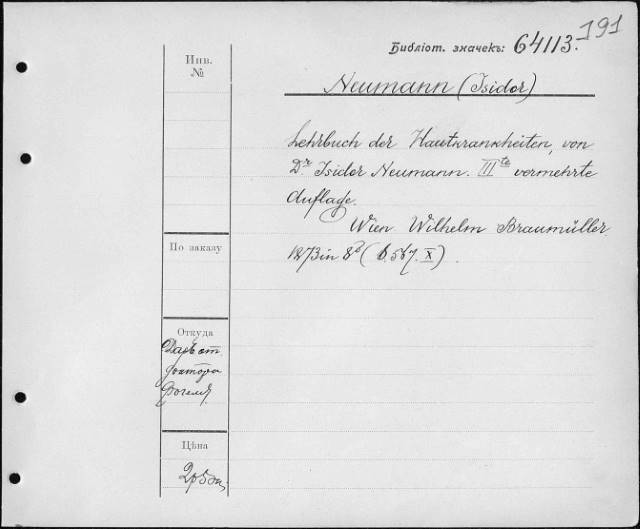 191
Библіот. значекъ: 64113.
Инв.
№
Neumann (Isidor)
Lehrbuch der Hautkrankheiten, von
Dr. Isidor Neumann. IIIte vermehrte
Auflage.
Wien Wilhelm Braumüller
1873 in 8º (S. 567. X)
По заказу
Откуда
Даръ ст.
доктора
Фогеля
Цѣна
2р 50к